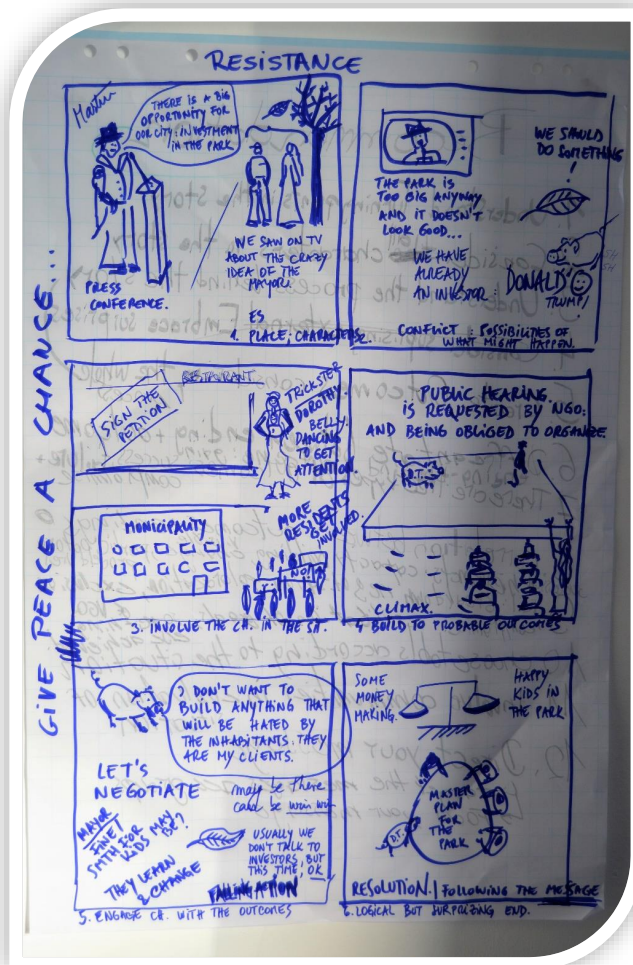 RESISTANCE
GIVE PEACE A CHANCE...
Martin
THERE IS A BIG
OPPORTUNITY FOR
OUR CITY. INVESTMENT
IN THE PARK
PRESS
CONFERENCE.
WE SAW ON TV
ABOUT THE CRAZY
IDEA OF THE
MAYOR.
1. PLACE, CHARACTERS
WE SHOULD
DO SOMETHING
!
THE PARK IS
TOO BIG ANYWAY
AND IT DOESN'T
LOOK GOOD...
WE HAVE
ALREADY
AN INVESTOR:
DONALD
TRUMP!
2. CONFLICT: POSSIBILITIES OF
WHAT MIGHT HAPPEN.
RESTAURANT
SIGN THE
PETITION
TRICKSTER
DOROTHY.
BELLY
DANCING
TO GET
ATTENTION.
MUNICIPALITY
MORE
RESIDENTS
GET
INVOLVED.
NO!
3. INVOLVE THE CH. IN THE ST.
PUBLIC HEARING.
IS REQUESTED BY NGO:
AND BEING OBLIGED TO ORGANIZE
D.T.
CLIMAX.
4. BUILD TO PROBABLE OUTCOMES
I DON'T WANT TO
BUILD ANYTHING THAT
WILL BE HATED BY
THE INHABITANTS. THEY
ARE MY CLIENTS.
LET'S
NEGOTIATE
may be there
could be win win
MAYOR
FINE!
SMTH FOR
KIDS MAY
BE?
USUALLY WE
DON'T TALK TO
INVESTORS, BUT
THIS TIME, OK
THEY LEARN
& CHANGE
FALLING ACTION
5. ENGAGE CH. WITH THE OUTCOMES
SOME
MONEY
MAKING.
HAPPY
KIDS IN
THE PARK
MASTER
PLAN
FOR
THE
PARK
D.T.
RESOLUTION. | FOLLOWING THE MESSAGE
6. LOGICAL BUT SURPRIZING END.